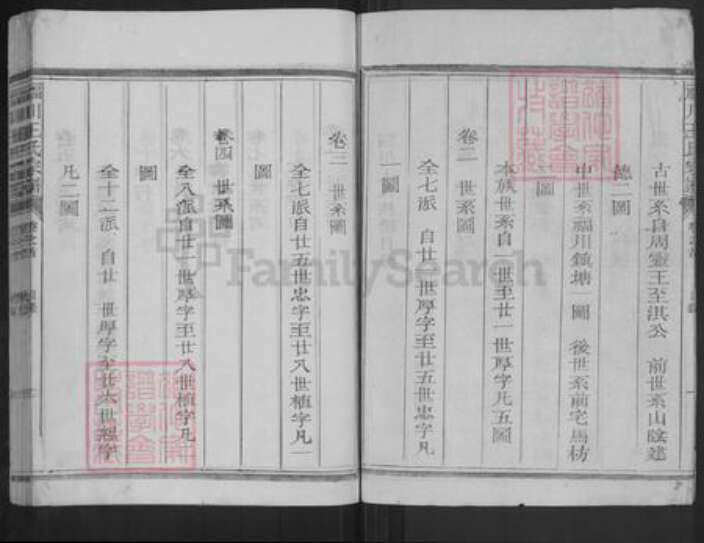 古世系自周靈王至淇公　前世系山陰建
德二圖
中世系福川鏡塘　圖　後世系前宅馬枋
二圖
本族世系自一世至廿一世厚字凡五圖
卷二　世系圖
全七派　自廿一世厚字至廿五世忠字凡
一圖
卷三　世系圖
全七派自廿五世忠字至廿八世植字凡一
圖
卷四　世系圖
全八派自廿一世厚字至廿八世植字凡一
圖
全十二派　自廿　世厚字至廿六世恕字
凡二圖
FamilySearch